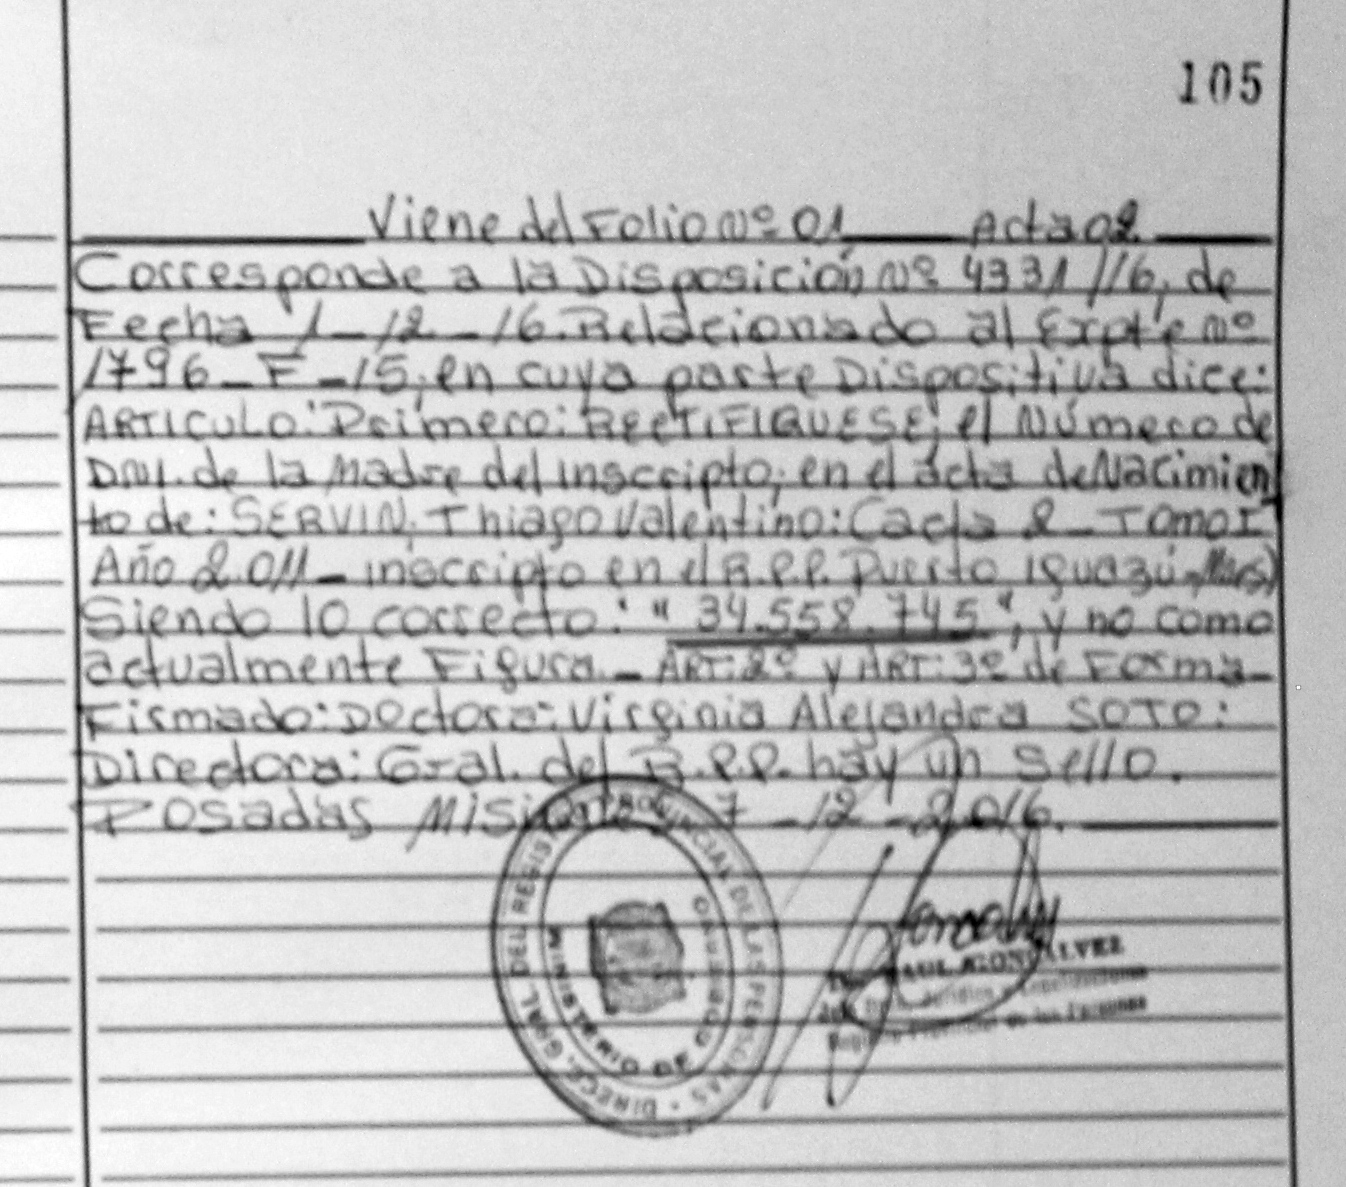 105
Viene del Folio Nº 01 Acta 02
Corresponde a la Disposición Nº 4331/16, de
Fecha 1-12-16. Relacionado al Expte Nº
1796-F-15, en cuya parte Dispositiva dice:
ARTICULO: Primero: RECTIFIQUESE; el Número de
DNI. de la Madre del inscripto, en el acta de Nacimien
to de: SERVIN, Thiago Valentino: 2 - TOMO I
Año 2.011 - inscripto en el R.P.P. Puerto Iguazú
Siendo lo correcto: "34.558.745", y no como
actualmente Figura. - ART: 2º y ART: 3º de Forma -
Firmado: Doctora: Virginia Alejandra SOTO:
Directora: Gral. del R.P.P. hay un sello.
Posadas Misiones 7-12-2.016.
DIRECC. GRAL. DEL REGISTRO PROVINCIAL DE LAS PERSONAS
MINISTERIO DE GOBIERNO